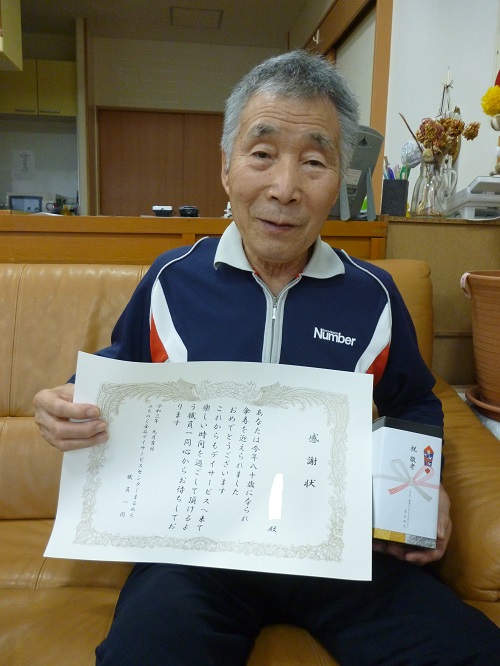 Number
感謝状
殿
あなたは今年八十歳になられ
傘寿を迎えられました
おめでとうございます
これからもデイサービスへ来て
楽しい時間を過ごして頂けるよ
う職員一同心からお待ちしてお
ります
令和三年 九月吉日
職員一同
祝 敬老